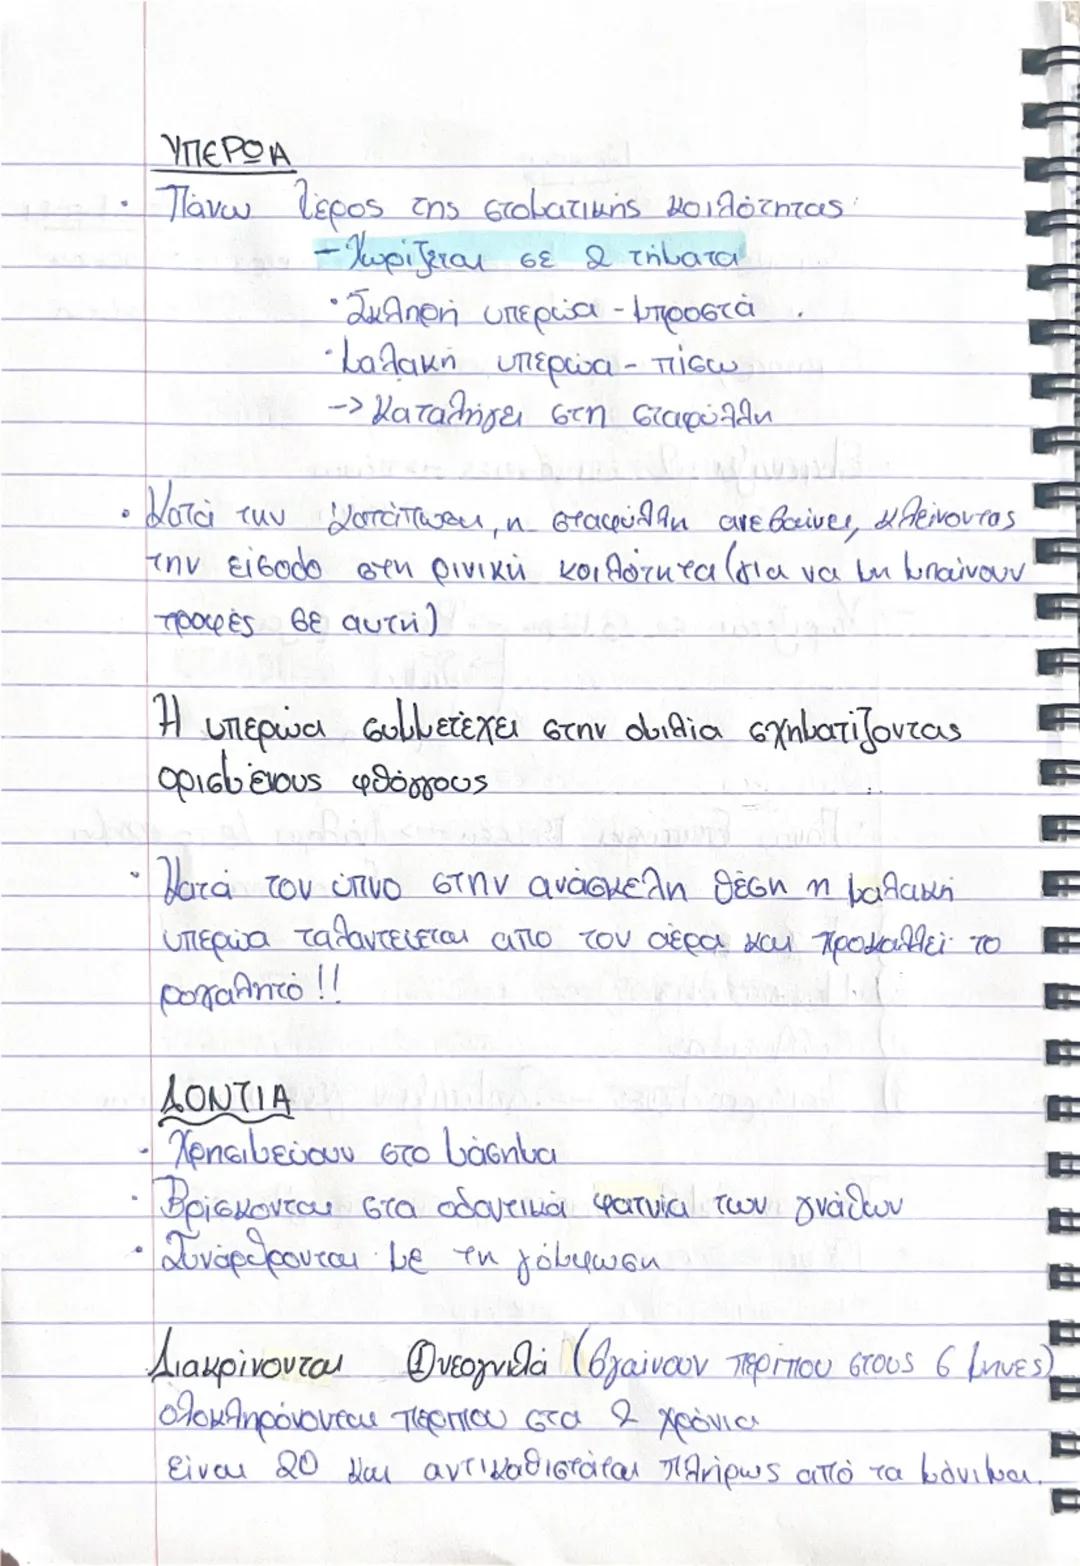 ΥΠΕΡΩΑ
• Πάνω μέρος της στοματικής κοιλότητας
- Χωρίζεται σε 2 τμήματα
• Σκληρή υπερώα - μπροστά
• Μαλακή υπερώα - πίσω
-> Καταλήγει στη σταφύλλη
• Κατά την κατάπωση, η σταφύλλη ανεβαίνει, κλείνοντας
την είσοδο στη ρινική κοιλότητα (για να μη μπαίνουν
τροφές σε αυτή)
Η υπερώα συμμετέχει στην ομιλία σχηματίζοντας
ορισμένους φθόγγους
• Κατά τον ύπνο στην ανάσκελη θέση η μαλακή
υπερώα ταλαντεύεται απο τον αέρα και προκαλλεί το
ροχαλητό !!
ΔΟΝΤΙΑ
• Χρησιμεύουν στο μάσημα
• Βρίσκονται στα οδοντικά φατνία των γνάθων
• Συνάρθρονται με τη γόμφωση
Διακρίνονται ① νεογιλά (βγαίνουν περίπου στους 6 μήνες)
ολοκληρώνονται περίπου στα 2 χρόνια
είναι 20 και αντικαθιστάται πλήρως από τα μόνιμα.